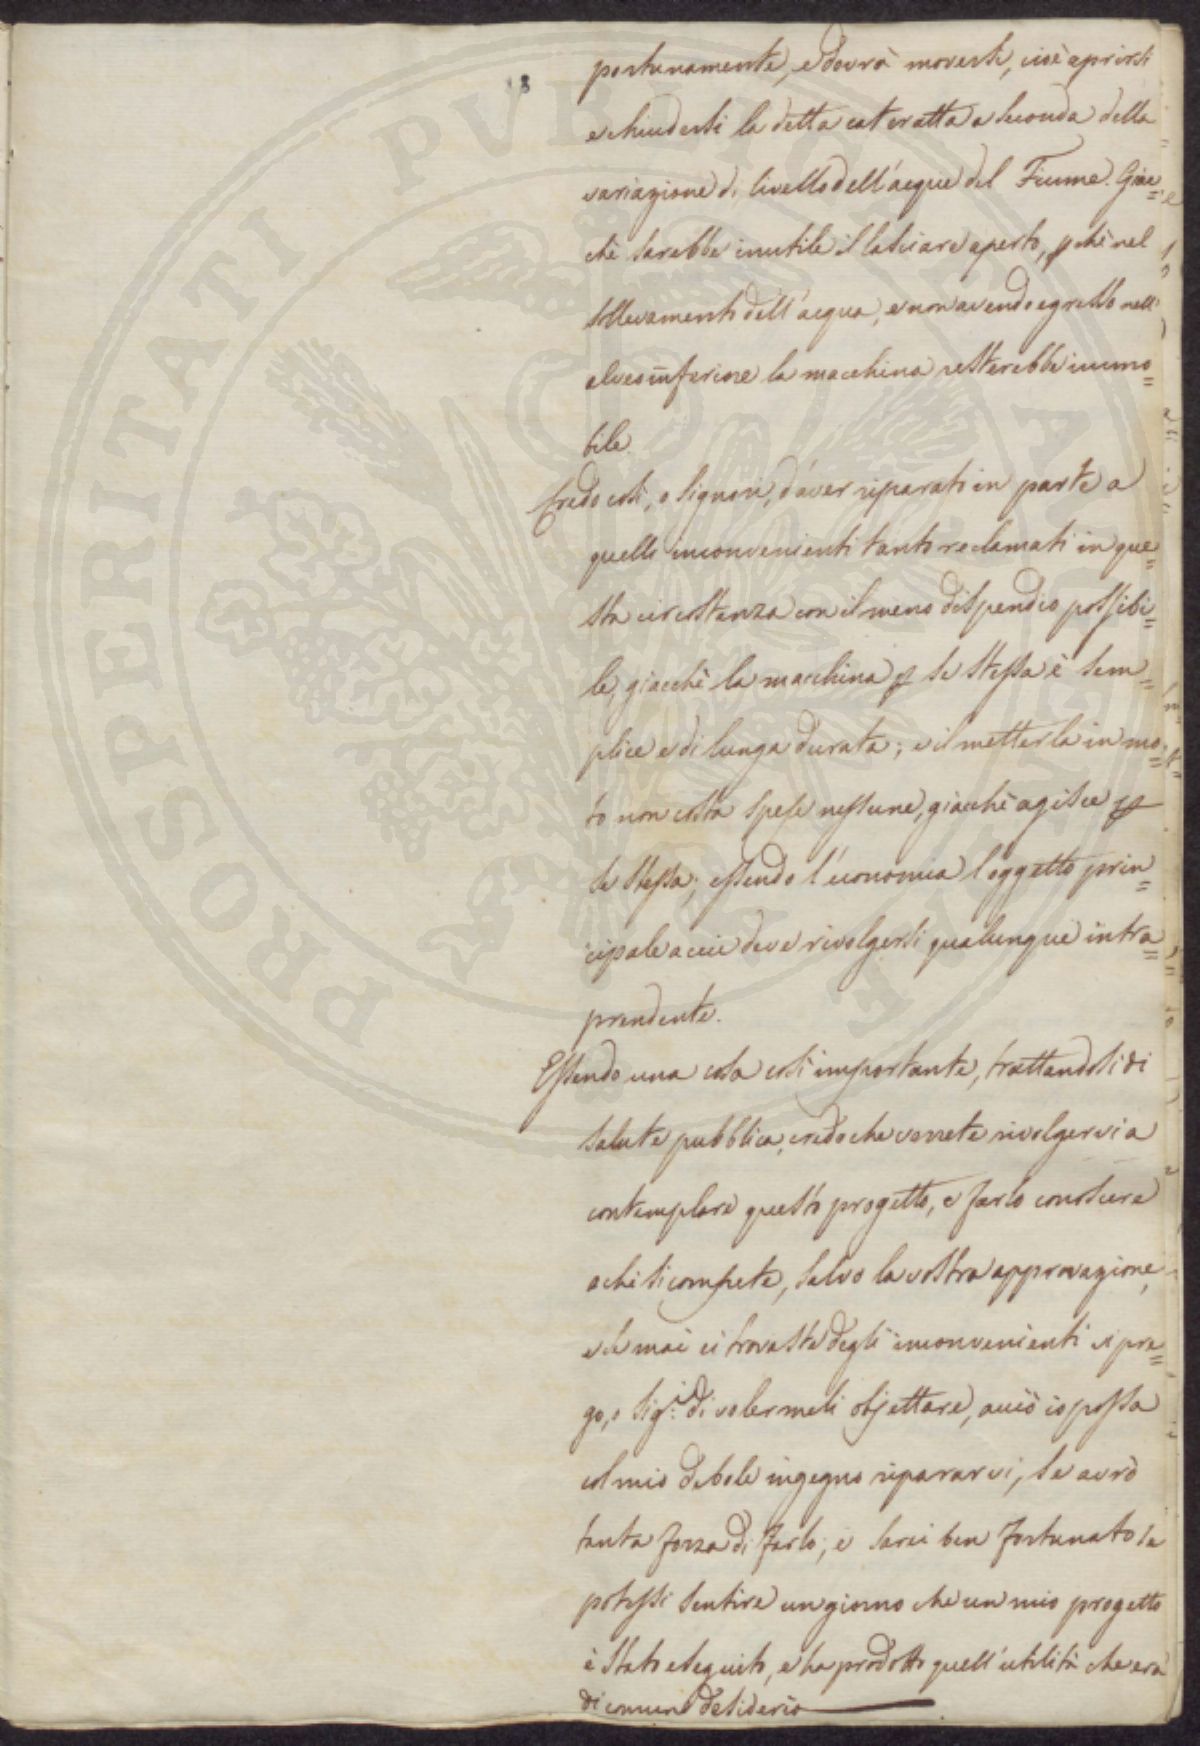 portunamente, e dovrà moversi, cioè aprirsi
e chiudersi la detta cateratta a seconda della
variazione di livello dell'acque del Fiume. Giac=
chè sarebbe inutile il lasciare aperto, pchè nel
sollevamento dell'acqua, e non avendo egresso nell'
alveo inferiore la macchina resterebbe immo=
bile.
Credo così, o Signori, d'aver riparato in parte a
quelli inconvenienti tanto reclamati in que=
sta circostanza con il meno dispendio possibi=
le, giacchè la macchina p se stessa è sem=
plice e di lunga durata; e il metterla in mo=
to non costa spese nessune, giacchè agisce p
se stessa; essendo l'economia l'oggetto prin=
cipale a cui deve rivolgersi qualunque intra=
prendente.
Essendo una cosa così importante, trattandosi di
salute pubblica, credo che vorrete rivolgervi a
contemplare questo progetto, e farlo conoscere
a chi si compete, salvo la vostra approvazione,
e se mai ci trovaste degli inconvenienti vi pre=
go, o Sig.i di volermeli objettare, acciò io possa
col mio debole ingegno ripararvi, se avrò
tanta forza di farlo; e sarei ben fortunato se
potessi sentire un giorno che un mio progetto
è stato eseguito, e ha prodotto quell'utilità che era
di comun desiderio
PROSPERITATI PVBLICAE